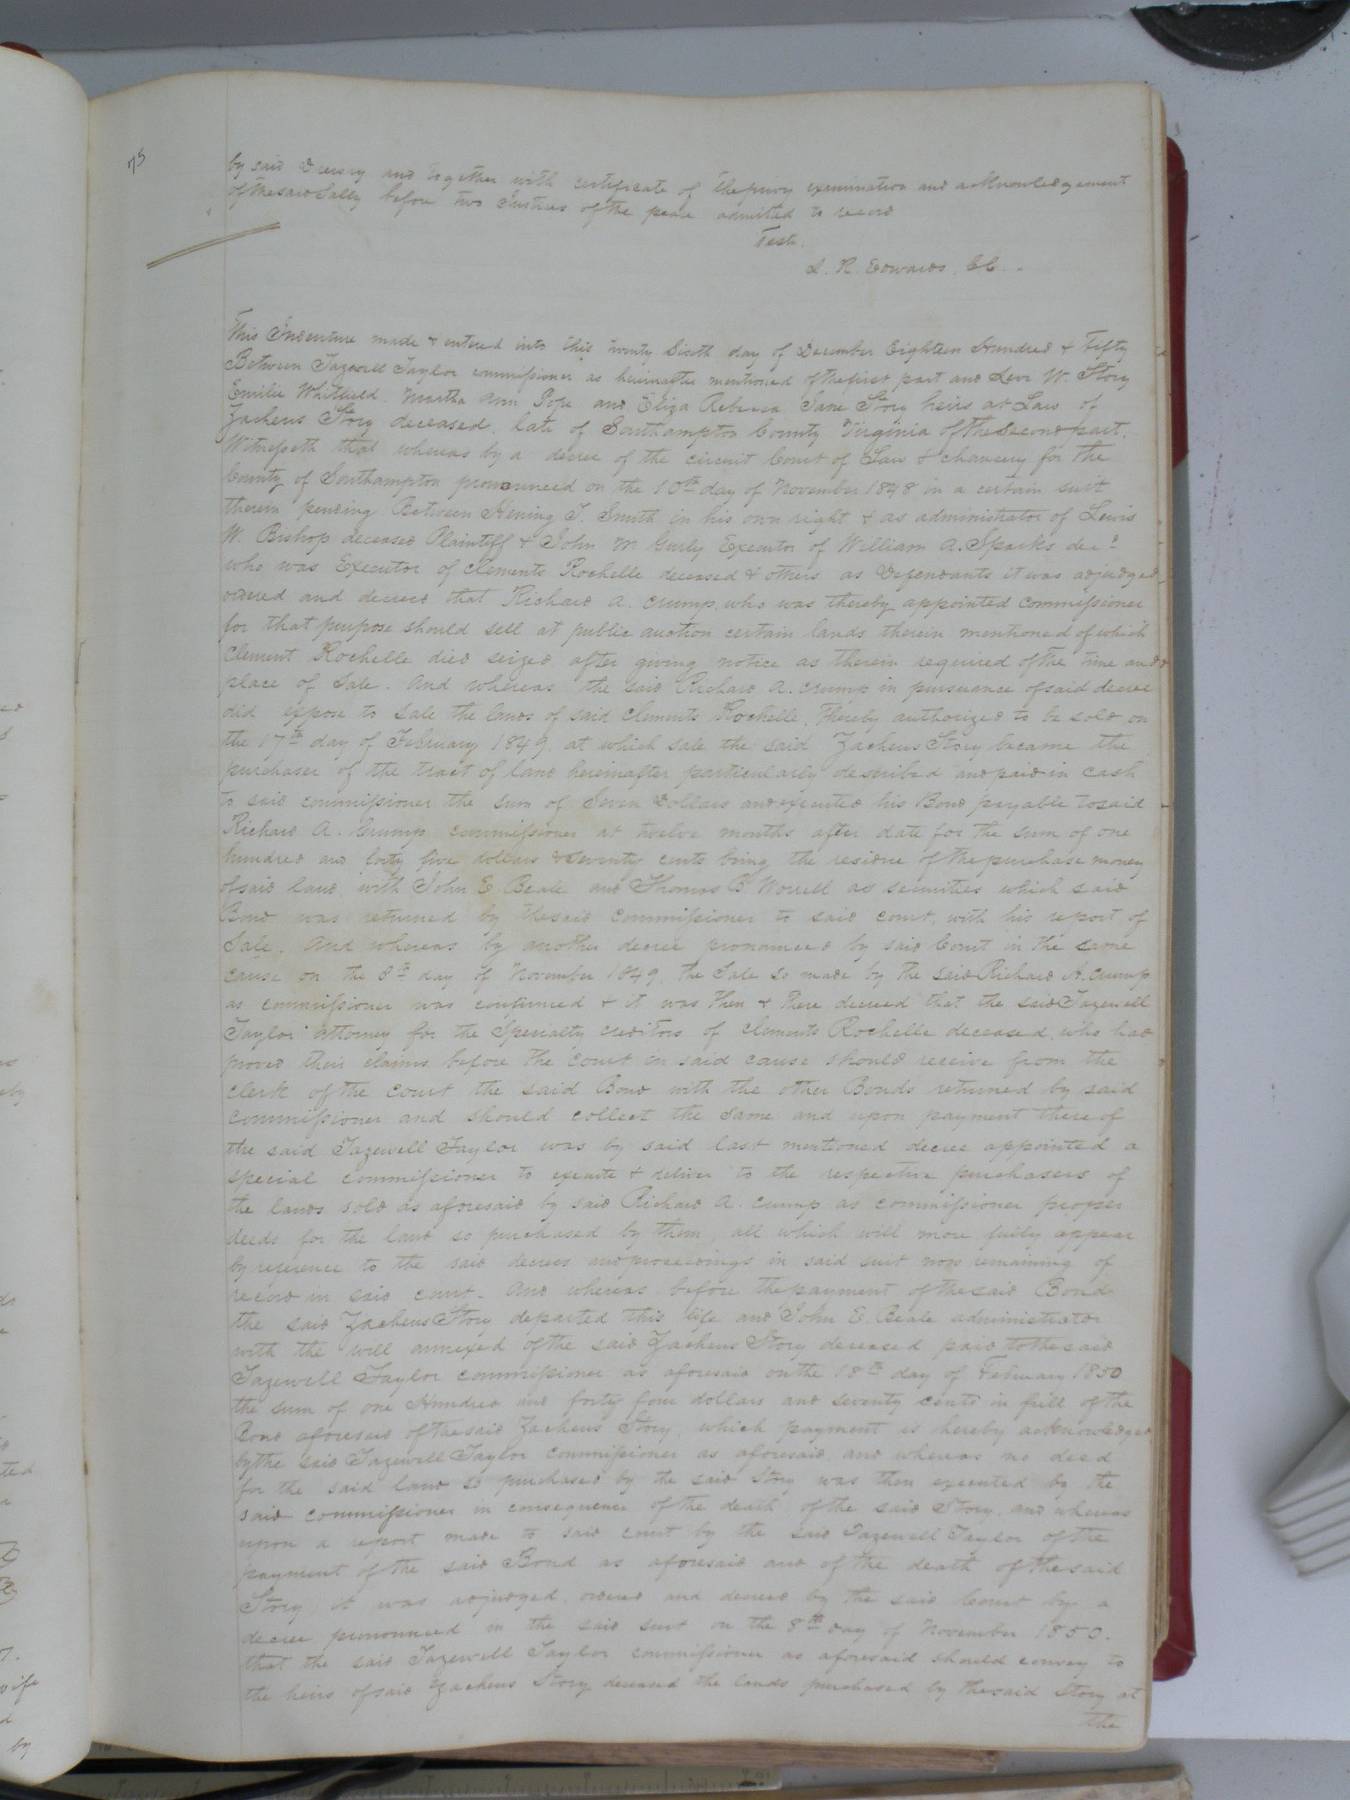 75
by said Drewry and together with certificate of the privy examination and acknowledgement
of the said Sally before two Justices of the peace admitted to record
Teste.
L. R. Edwards, CC.
This Indenture made & entered into this twenty Sixth day of December Eighteen Hundred & Fifty
Between Tazewell Taylor commissioner as hereinafter mentioned of the first part and Levi W. Story
Emilie Whitfield. Martha Ann Pope and Eliza Rebecca Jane Story heirs at Law of
Zacheus Story deceased, late of Southampton County Virginia of the Second part.
Witnesseth that whereas by a decree of the circuit Court of Law & chancery for the
County of Southampton pronounced on the 10th day of November 1848 in a certain suit
therein pending Between Hening T. Smith in his own right & as administrator of Lewis
W. Bishop deceased Plaintiff & John W Gurly Executor of William A. Sparks decd
who was Executor of Clements Rochelle deceased & others as Defendants it was adjudged
ordered and decreed that Richard A. Crump, who was thereby appointed commissioner
for that purpose should sell at public auction certain lands therein mentioned of which
Clement Rochelle died seized after giving notice as therein required of the time and
place of Sale. And whereas the said Richard A. Crump in pursuance of said decree
did expose to Sale the lands of said Clements Rochelle, thereby authorized to be sold on
the 17th day of February 1849 at which sale the said Zacheus Story became the
purchaser of the tract of land hereinafter particularly described and paid in cash
to said commissioner the sum of Seven dollars and executed his Bond payable to said
Richard A. Crump commissioner at twelve months after date for the sum of one
hundred and forty five dollars & seventy cents being the residue of the purchase money
of said land, with John E. Beale and Thomas B Worrell as securities which said
Bond was returned by the said commissioner to said court, with his report of
Sale. And whereas by another decree pronounced by said Court in the same
cause on the 8th day of November 1849, the Sale so made by the said Richard A. Crump
as commissioner was confirmed & it was then & there decreed that the said Tazewell
Taylor attorney for the Specialty creditors of Clements Rochelle deceased, who had
proved their claims before the court in said cause should receive from the
clerk of the court the said Bond with the other Bonds returned by said
commissioner and should collect the same and upon payment there of
the said Tazewell Taylor was by said last mentioned decree appointed a
special commissioner to execute & deliver to the respective purchasers of
the lands sold as aforesaid by said Richard A. Crump as commissioner proper
deeds for the land so purchased by them, all which will more fully appear
by reference to the said decrees and proceedings in said suit now remaining of
record in said court. And whereas before the payment of the said Bond
the said Zacheus Story departed this life and John E. Beale administrator
with the will annexed of the said Zacheus Story deceased paid to the said
Tazewell Taylor commissioner as aforesaid on the 18th day of February 1850
the sum of one Hundred and forty four dollars and seventy cents in full of the
Bond aforesaid of the said Zacheus Story which payment is hereby acknowledged
by the said Tazewell Taylor commissioner as aforesaid, and whereas no deed
for the said land so purchased by the said Story was then executed by the
said commissioner in consequence of the death of the said Story. and whereas
upon a report made to said court by the said Tazewell Taylor of the
payment of the said Bond as aforesaid and of the death of the said
Story, it was adjudged ordered and decreed by the said Court by a
decree pronounced in the said suit on the 8th day of November 1850.
that the said Tazewell Taylor commissioner as aforesaid should convey to
the heirs of said Zacheus Story deceased the lands purchased by the said Story at
the